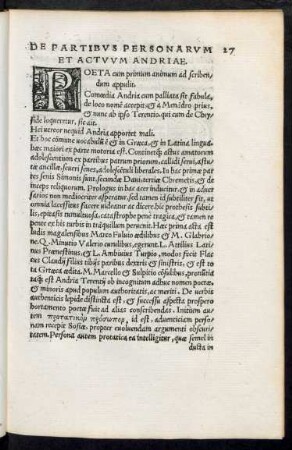 DE PARTIBVS PERSONARVM 27
ET ACTVVM ANDRIAE.
POETA cum primum animum ad scriben
dum appulit.
Comœdia Andria cum palliata sit fabula,
de loco nomē accepit: & à Menādro prius,
& nunc ab ipso Terentio. qui cum de Chry
side loqueretur, sic ait.
Hei uereor nequid Andria apportet mali.
Et hoc nomine uocabuli & in Græca, & in Latina lingua
hæc maiori ex parte motoria est. Continetq́; actus amatorum
adolescentium ex partibus patrum priorum, callidi serui, astu
tæ ancillæ, seueri senes, adolescentuli liberales. In hac primæ par
tes senis Simonis sunt, secundæ Daui, tertiæ Chremetis, & de
inceps reliquorum. Prologus in hac acer inducitur, & in aduer
sarios non mediocriter asper, sed tamen id subtiliter fit, ut
omnia lacessitus facere uideatur. Prothesis subtilis,
epitasis tumultuosa, catastrophe penè tragica, & tamen re
pente ex his turbis in trāquillum peruenit. Hæc prima acta est
ludis megalensibus Marco Fuluio ædilibus & M. Glabrio
ne, Q. Minutio Valerio curulibus, egerunt L. Attilius Latinus
Prænestinus, & L. Ambiuius Turpio, modos fecit Flac
cus Claudij filius tibijs paribus dextris & sinistris, & est to
ta Græca ædita. M. Marcello & Sulpitio cōsulibus, pronūtia
taq́; est Andria Terentij ob incognitum adhuc nomen poetæ,
& minoris apud populum authoritatis, ac meriti. De uerbis
authenticis lepide distincta est, & successu aspecta prospero
hortamento poetæ fuit ad alias conscribendas. Initium autem
προτατικὸν πρόσωπον, id est, aduenticiam perso
nam recepit Sosiæ, propter euoluendam argumenti obscuri
tatem. Persona autem protatica ea intelligitur, quæ semel in
ducta in